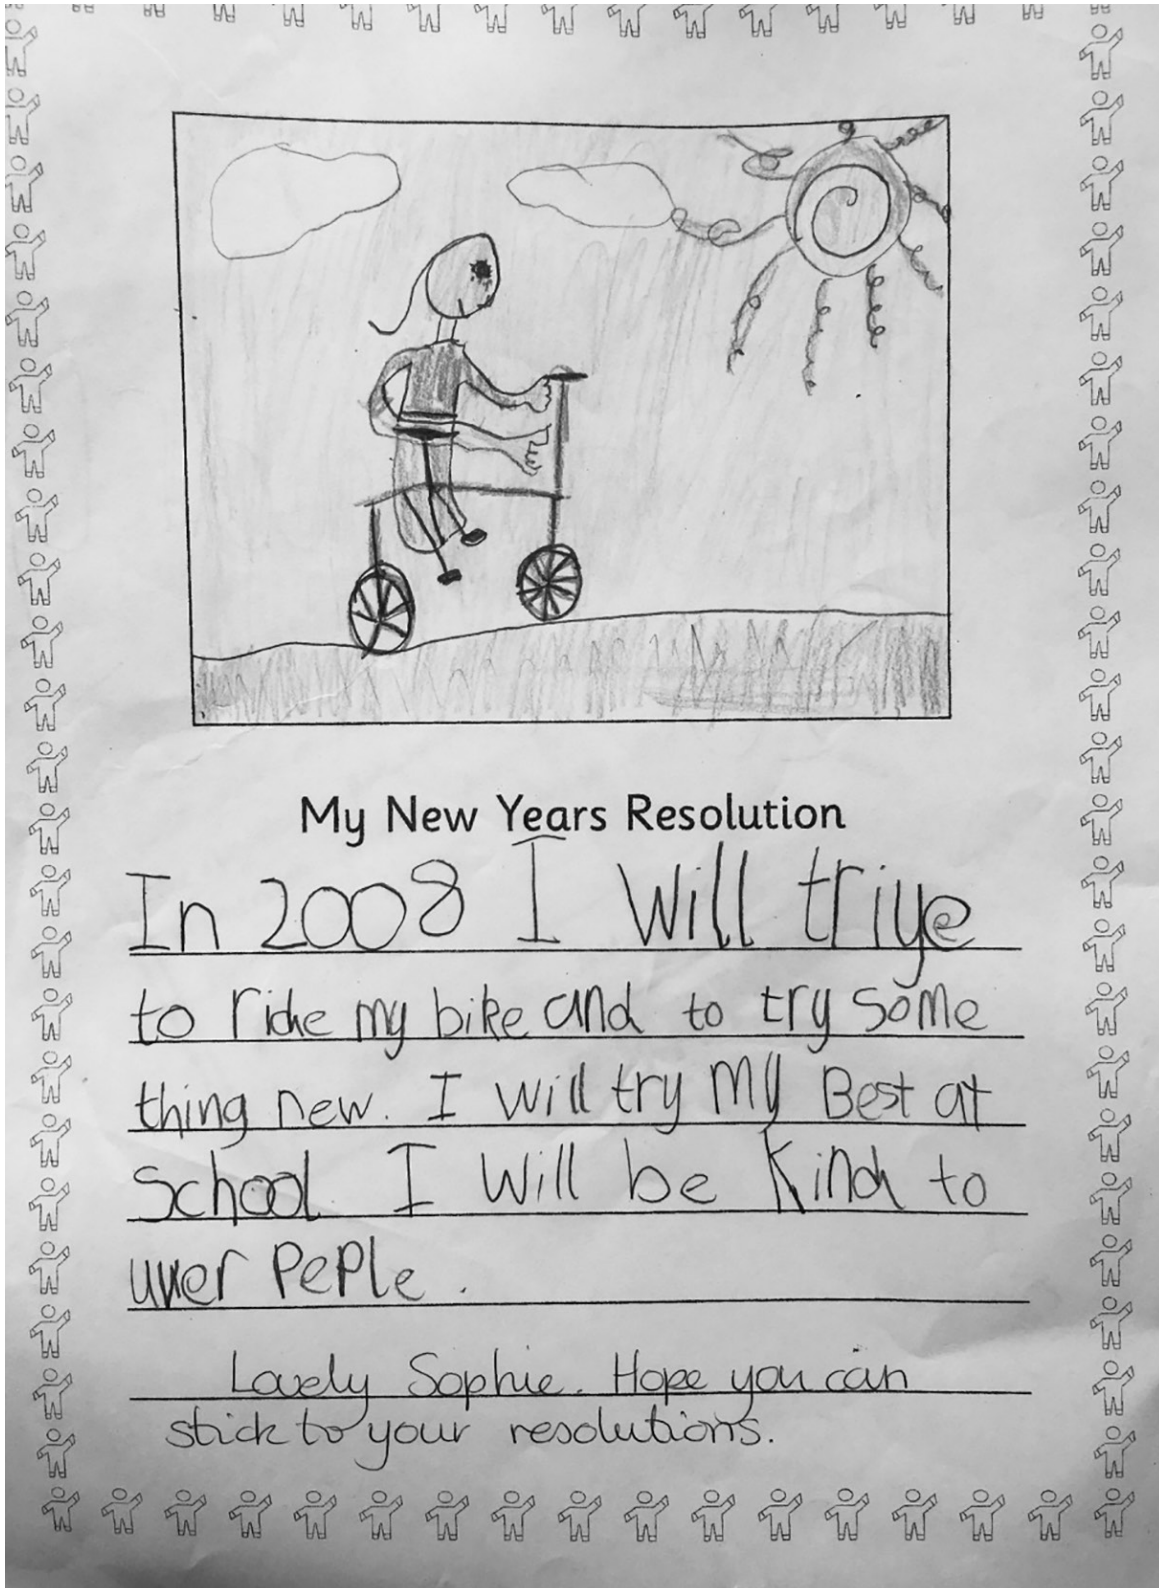 My New Years Resolution
In 2008 I will triye
to ride my bike and to try some
thing new. I will try my Best at
School I will be kind to
uver PePle.
Lovely Sophie. Hope you can
stick to your resolutions.